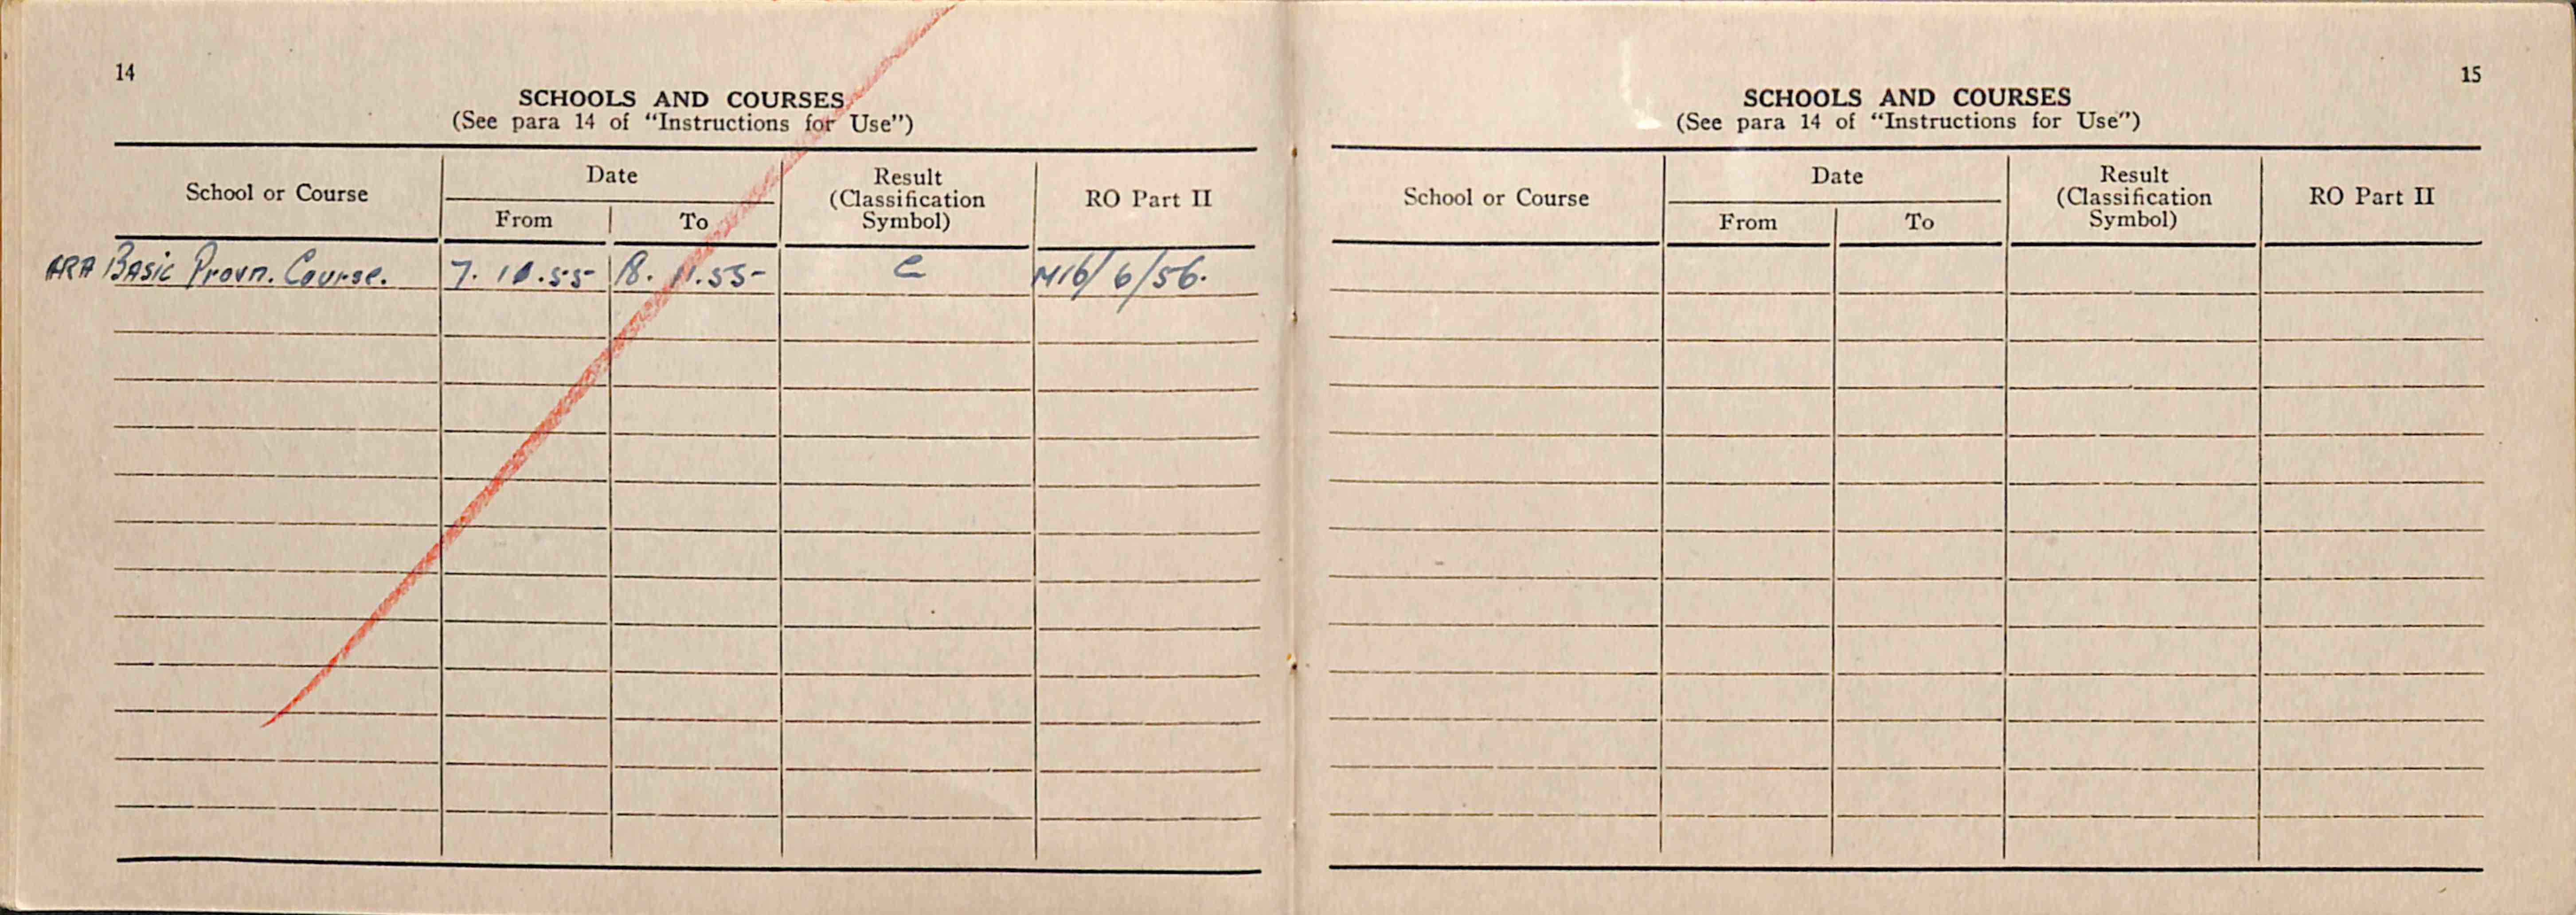 14
SCHOOLS AND COURSES
(See para 14 of "Instructions for Use")
School or Course
Date
From
To
Result
(Classification
Symbol)
RO Part II
ARA Basic Provn. Course. 7. 10.55 18. 11.55 C M16/6/56.
15
SCHOOLS AND COURSES
(See para 14 of "Instructions for Use")
School or Course
Date
From
To
Result
(Classification
Symbol)
RO Part II